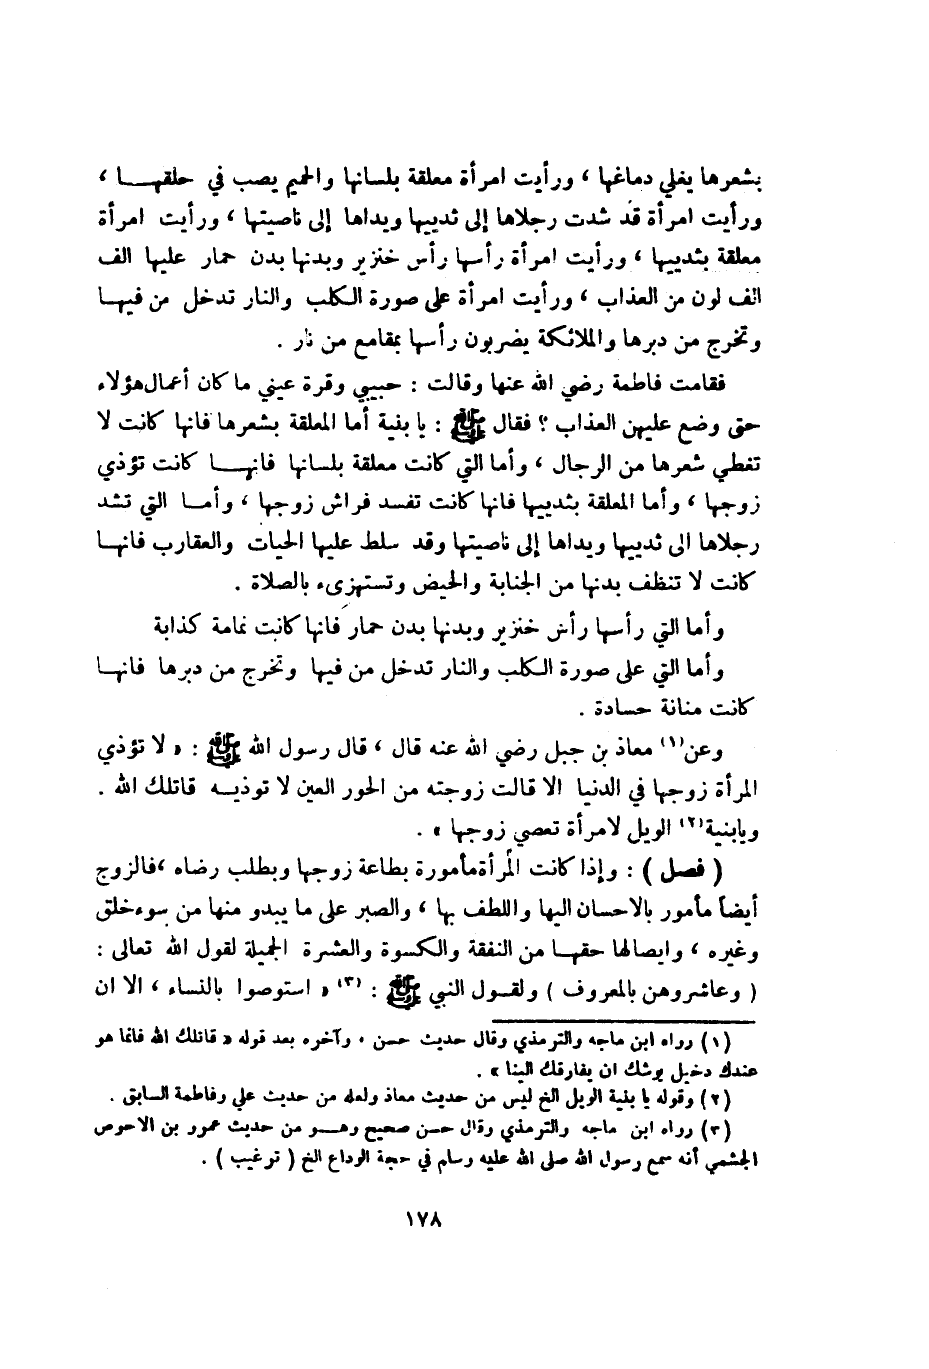 بشعرها يغلي دماغها ، ورأيت امرأة معلقة بلسانها والحميم يصب في حلقهـــا ،
ورأيت امرأة قد شدت رجلاها إلى ثدييها ويداها إلى ناصيتها ، ورأيت امرأة
معلقة بثدييها ، ورأيت امرأة رأسها رأس خنزير وبدنها بدن حمار عليها الف
الف لون من العذاب ، ورأيت امرأة على صورة الكلب والنار تدخل من فيهـا
وتخرج من دبرها والملائكة يضربون رأسها بمقامع من نار .
فقامت فاطمة رضي الله عنها وقالت : حبيبي وقرة عيني ما كان أعمال هؤلاء
حتى وضع عليهن العذاب ؟ فقال ﷺ : يا بنية أما المعلقة بشعرها فانها كانت لا
تغطي شعرها من الرجال ، وأما التي كانت معلقة بلسانها فانهـــا كانت تؤذي
زوجها ، وأما المعلقة بثدييها فانها كانت تفسد فراش زوجها ، وأمـا التي تشد
رجلاها الى ثدييها ويداها إلى ناصيتها وقد سلط عليها الحيات والعقارب فانهـا
كانت لا تنظف بدنها من الجنابة والحيض وتستهزىء بالصلاة .
وأما التي رأسها رأس خنزير وبدنها بدن حمار فانها كانت نمامة كذابة
وأما التي على صورة الكلب والنار تدخل من فيها وتخرج من دبرها فانهـا
كانت منانة حسادة .
وعن(١) معاذ بن جبل رضي الله عنه قال ، قال رسول الله ﷺ : « لا تؤذي
المرأة زوجها في الدنيا الا قالت زوجته من الحور العين لا توذيـه قاتلك الله .
ويابنية(٢) الويل لامرأة تعصي زوجها » .
( فصل ) : وإذا كانت المرأة مأمورة بطاعة زوجها وبطلب رضاه ، فالزوج
أيضاً مأمور بالاحسان اليها واللطف بها ، والصبر على ما يبدو منها من سوء خلق
وغيره ، وايصالها حقهـا من النفقة والكسوة والعشرة الجميلة لقول الله تعالى :
( وعاشروهن بالمعروف ) ولقـول النبي ﷺ : (٣) « استوصوا بالنساء ، الا ان
(١) رواه ابن ماجه والترمذي وقال حديث حسن ، وآخره بعد قوله « قاتلك الله فانما هو
عندك دخيل يوشك ان يفارقك الينا » .
(٢) وقوله يا بنية الويل الخ ليس من حديث معاذ ولعله من حديث علي وفاطمة السابق .
(٣) رواه ابن ماجه والترمذي وقال حسن صحيح وهـــو من حديث عمرو بن الاحوص
الجشمي أنه سمع رسول الله صلى الله عليه وسلم في حجة الوداع الخ ( ترغيب ) .
١٧٨